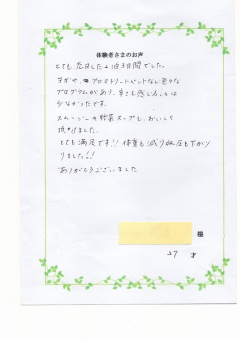 体験者さまのお声
とても充実した2泊3日間でした。
ヨガや、アロマトリートメントなど色々な
プログラムがあり、辛さを感じることは
少なかったです。
スムージーや野菜スープも、おいしく
頂けました。
とても満足です!! 体重も減り血圧も下がり
りました!!
ありがとうございました
様
27 才